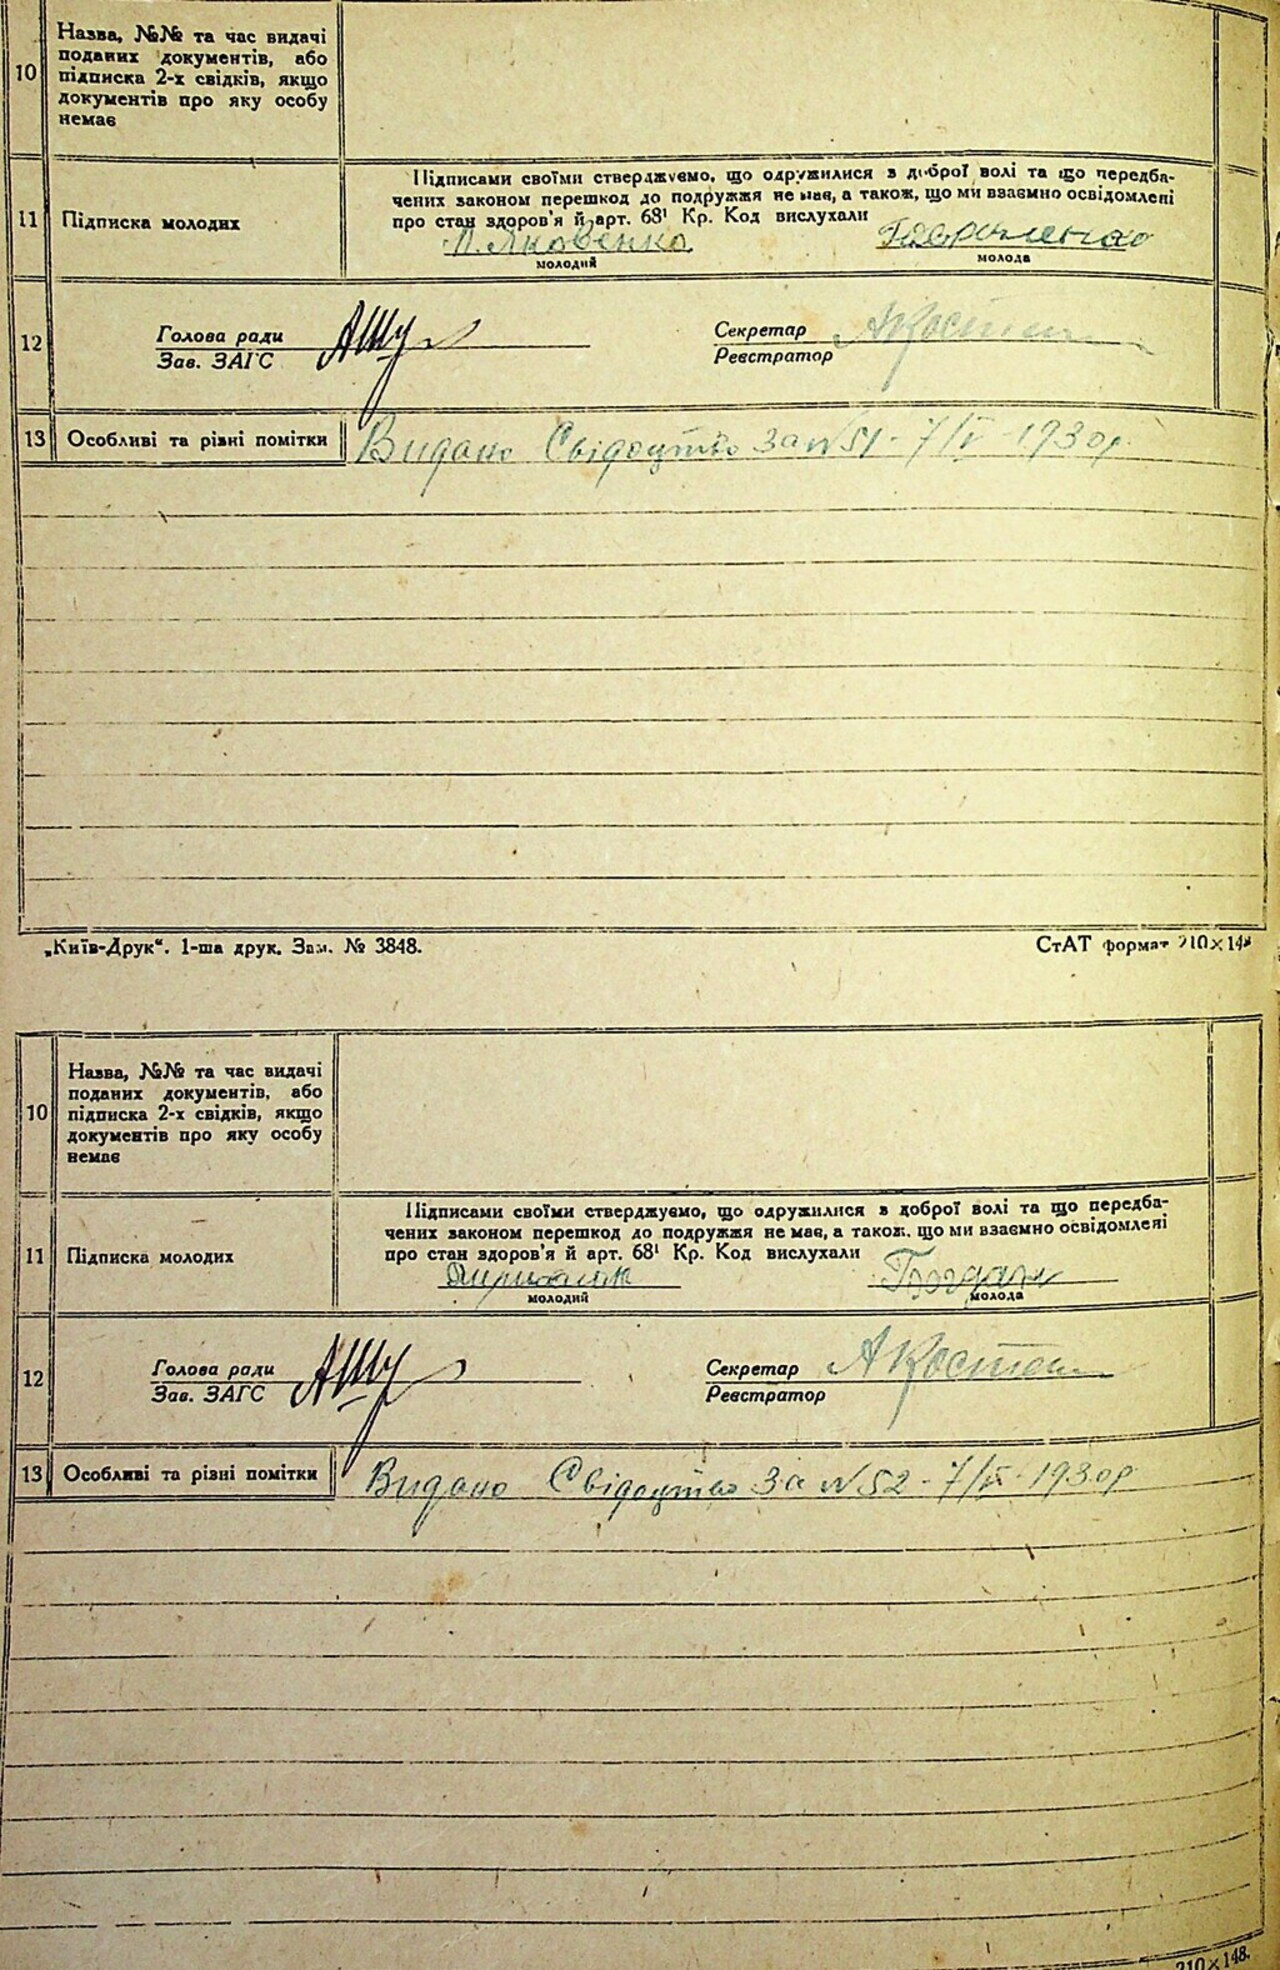 10
Назва, №№ та час видачі
поданих документів, або
підписка 2-х свідків, якщо
документів про яку особу
немає
11
Підписка молодих
Підписами своїми стверджуємо, що одружилися з доброї волі та що передба-
чених законом перешкод до подружжя не має, а також, що ми взаємно освідомлені
про стан здоров'я й арт. 68¹ Кр. Код вислухали
Яковенко
Гавриленко
молодий
молода
12
Голова ради
Зав. ЗАГС
Секретар
Реєстратор
13
Особливі та різні помітки
Видано Свідоцтво за N 51 - 7/IV 1930 р.
„Київ-Друк“. 1-ша друк. Зам. № 3848.
СтАТ формат 210×148
10
Назва, №№ та час видачі
поданих документів, або
підписка 2-х свідків, якщо
документів про яку особу
немає
11
Підписка молодих
Підписами своїми стверджуємо, що одружилися з доброї волі та що передба-
чених законом перешкод до подружжя не має, а також, що ми взаємно освідомлені
про стан здоров'я й арт. 68¹ Кр. Код вислухали
молодий
молода
12
Голова ради
Зав. ЗАГС
Секретар
Реєстратор
13
Особливі та різні помітки
Видано Свідоцтво за N 52 - 7/IV - 1930 р
210×148.